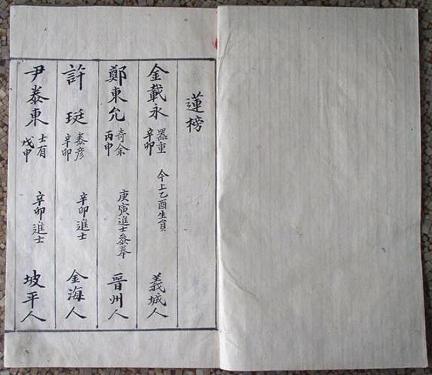 蓮榜
金載永 器重 辛卯 今上乙酉生員 義城人
鄭東允 奇余 丙申 庚寅進士參奉 晉州人
許珽 泰彦 辛卯 辛卯進士 金海人
尹泰東 士有 戊申 辛卯進士 坡平人